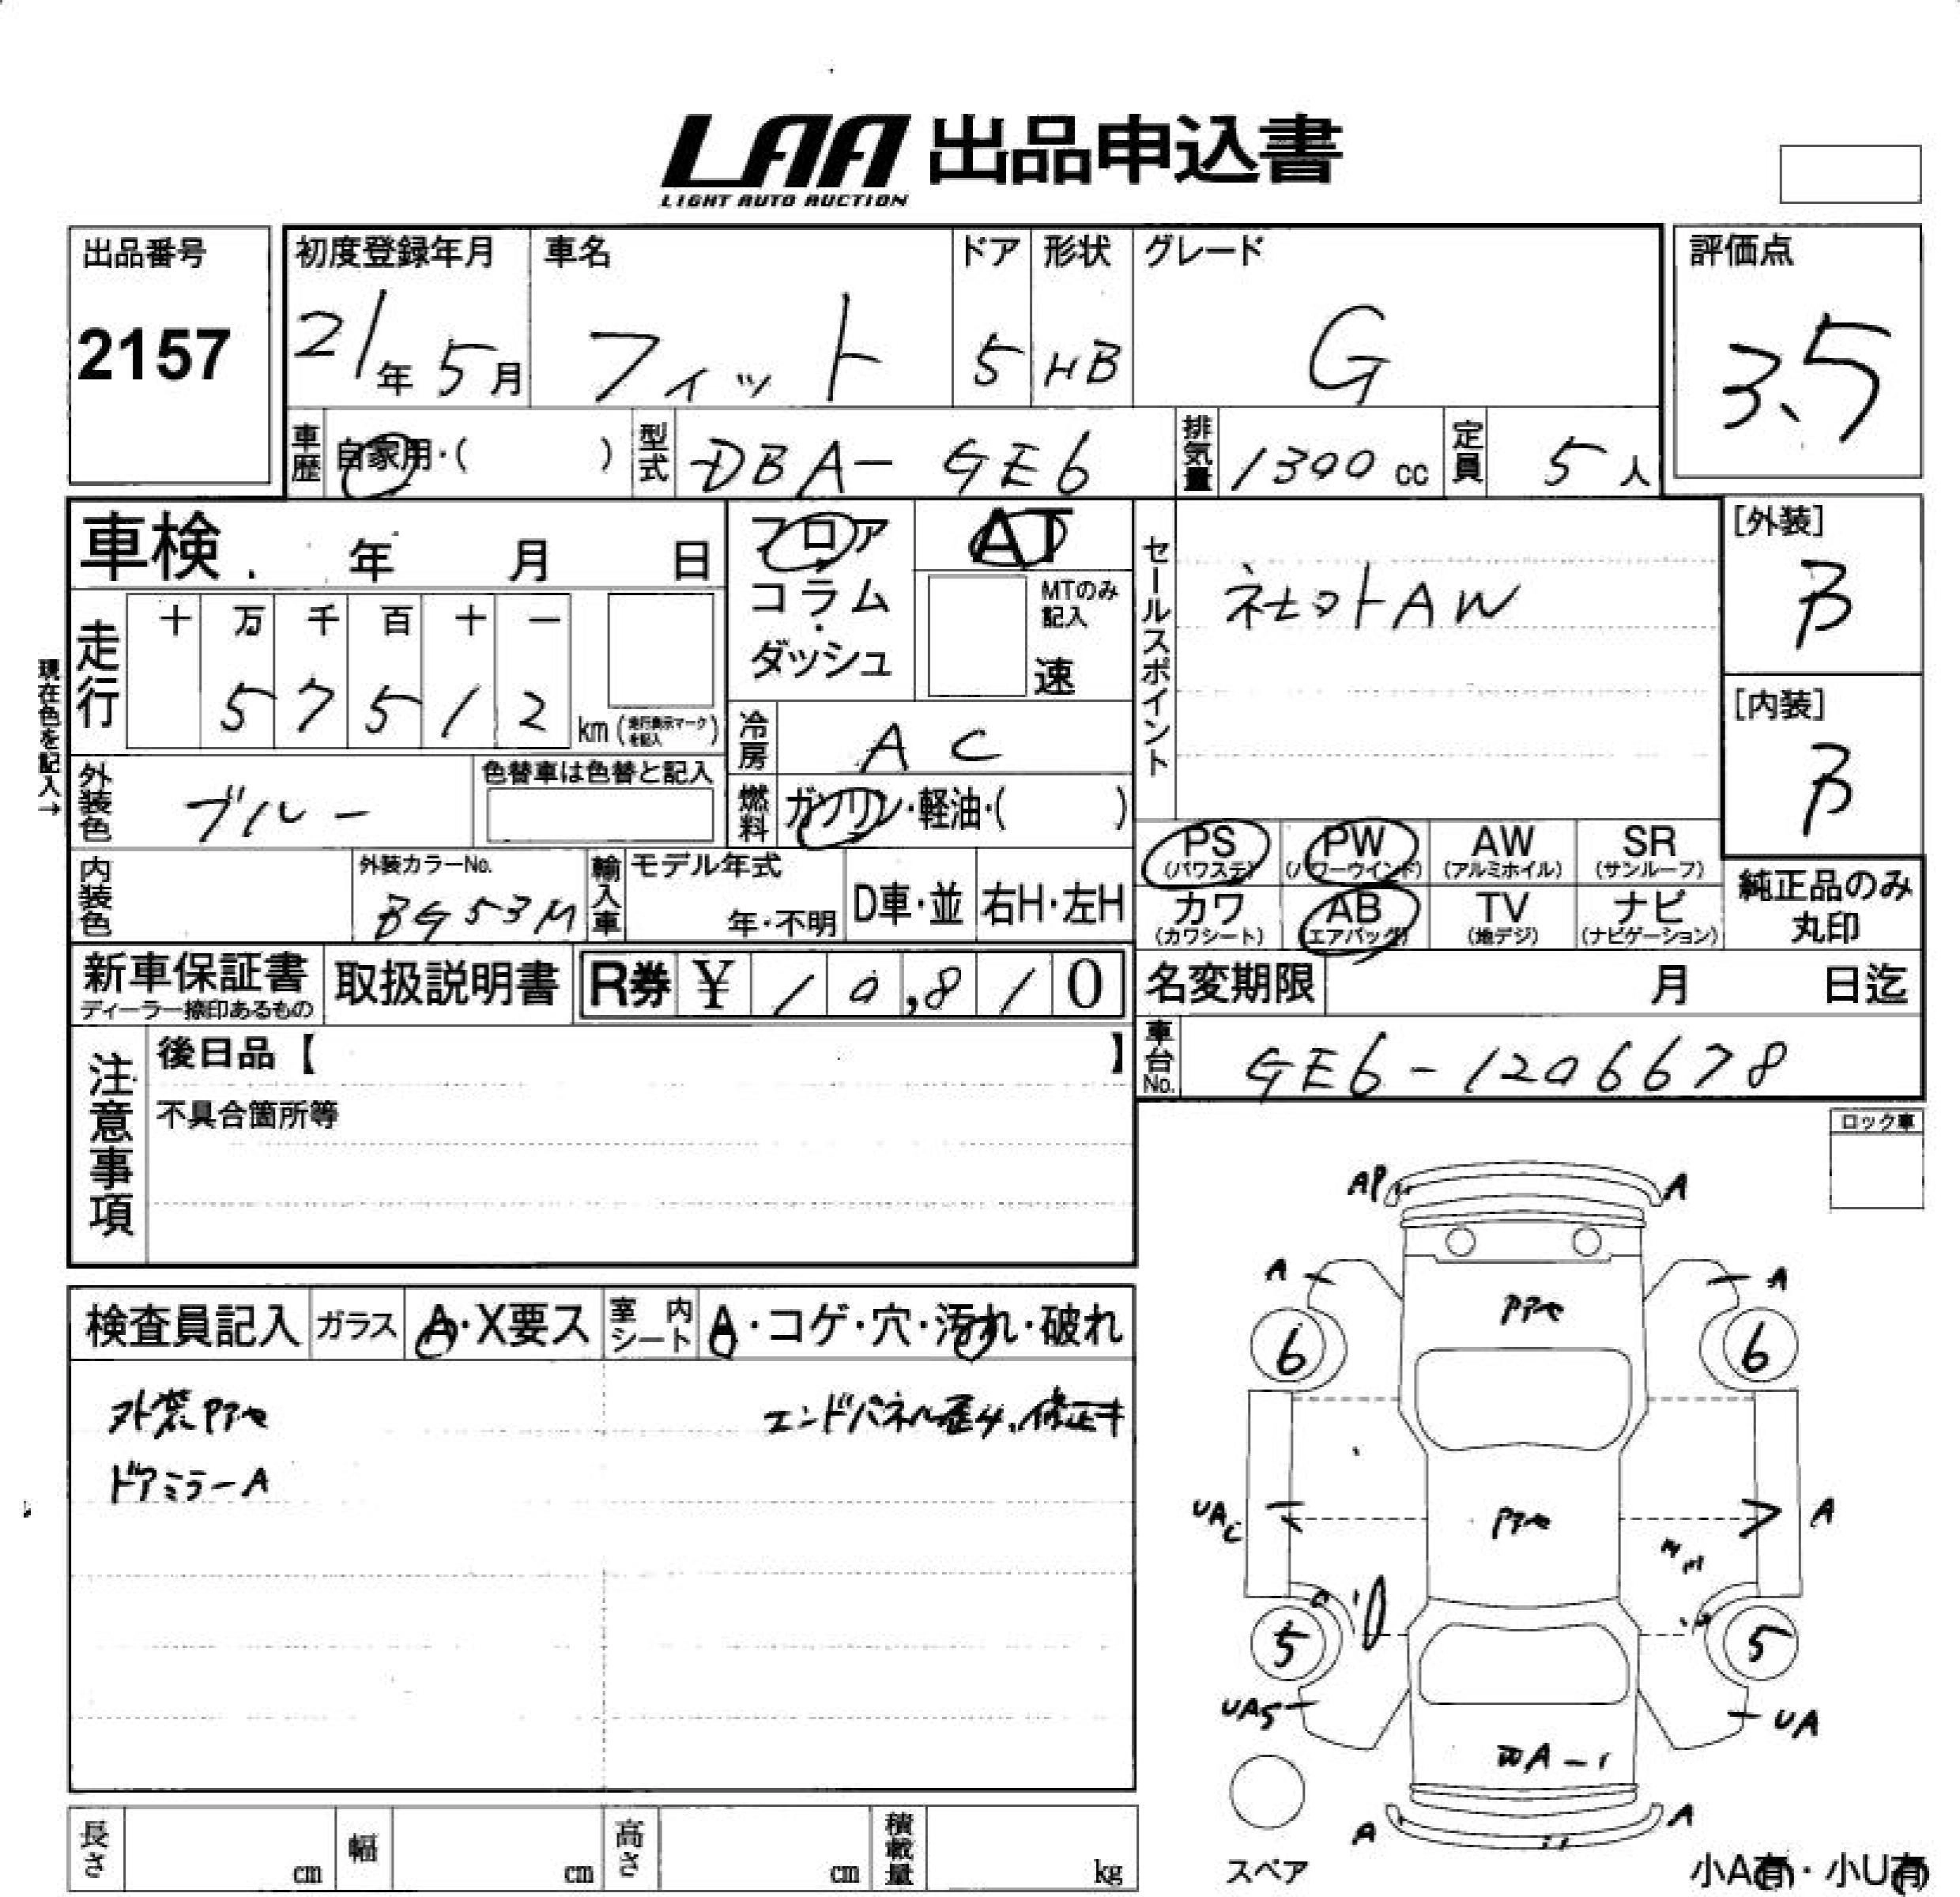 LAA 出品申込書
LIGHT AUTO AUCTION
出品番号
2157
初度登録年月
21年 5月
車名
フィット
ドア
5
形状
HB
グレード
G
評価点
3.5
車歴
自家用・( )
型式
DBA-GE6
排気量
1300 cc
定員
5人
車検 年 月 日
走行
十 万 千 百 十 一
5 7 5 1 2
km (走行表示マークを記入)
現在色を記入→
フロア
コラム
・
ダッシュ
AT
MTのみ記入
速
冷房
AC
燃料
ガソリン・軽油・( )
外装色
ブルー
色替車は色替と記入
内装色
外装カラーNo.
BG53M
輸入車
モデル年式
年・不明
D車・並
右H・左H
セールスポイント
社外AW
[外装]
B
[内装]
B
PS (パワステ)
PW (パワーウインド)
AW (アルミホイル)
SR (サンルーフ)
カワ (カワシート)
AB (エアバッグ)
TV (地デジ)
ナビ (ナビゲーション)
純正品のみ丸印
新車保証書
ディーラー捺印あるもの
取扱説明書
R券 ¥ 10,810
名変期限 月 日迄
車台No.
GE6-1206678
注意事項
後日品【 】
不具合箇所等
ロック車
検査員記入
ガラス
A・X要ス
室内シート
A・コゲ・穴・汚れ・破れ
外装Pアセ
ドアミラーA
エンドパネル歪み、修正キ
AP
A
A
A
Pアセ
6
6
UAC
Pアセ
A
5
5
UAS
UA
A
A
スペア
長さ cm
幅 cm
高さ cm
積載量 kg
小A有・小U有